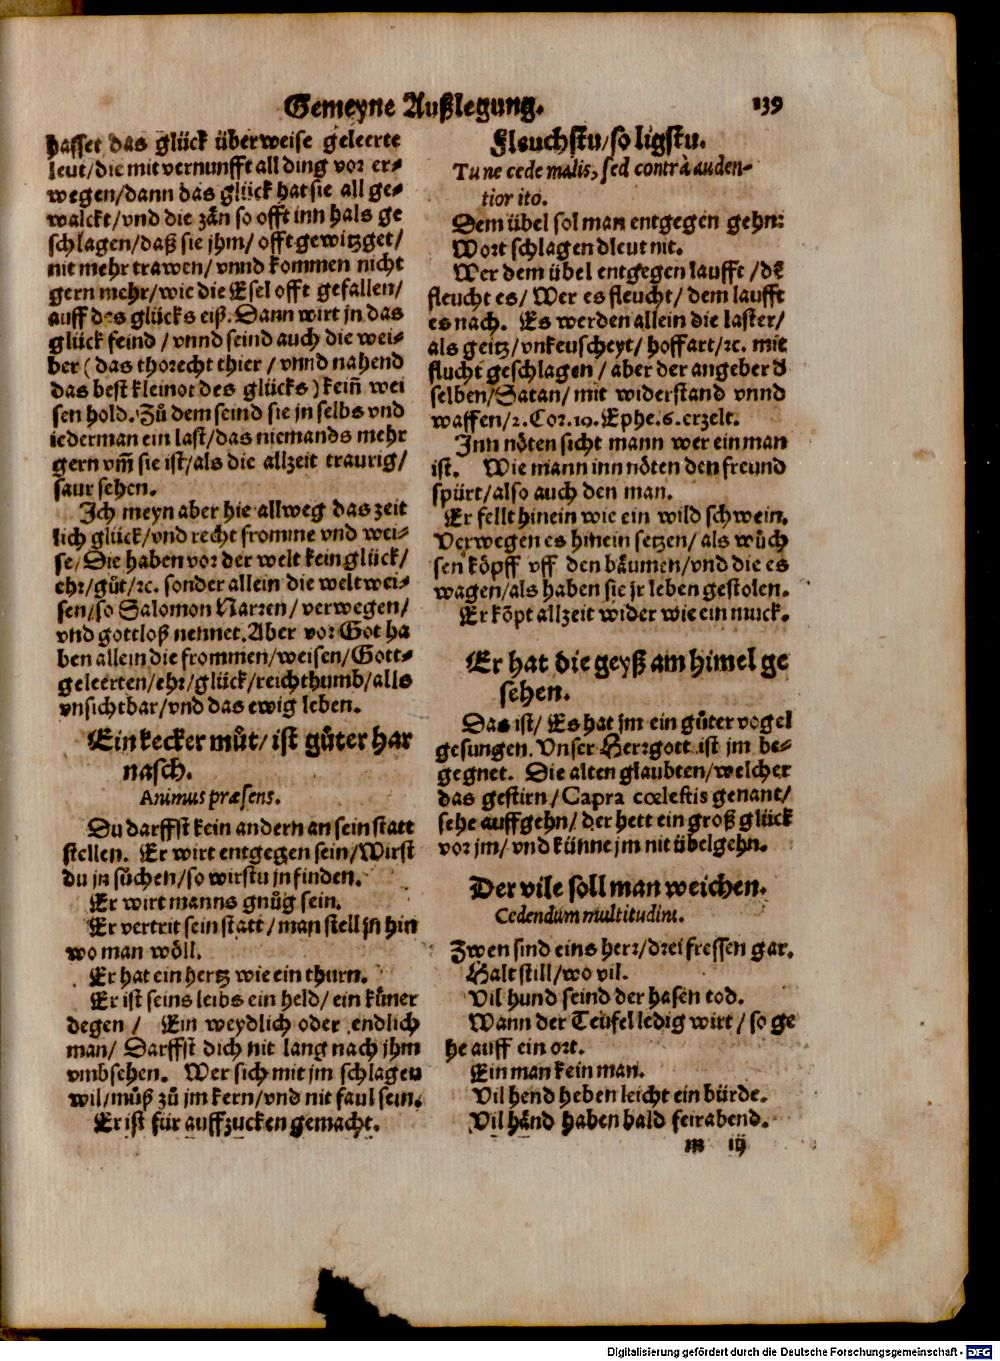 Gemeyne Außlegung. 139
hasset das glück überweise geleerte
leut/die mit vernunfft all ding vor er⸗
wegen/dann das glück hat sie all ge⸗
walckt/vnd die zän so offt inn hals ge
schlagen/daß sie jhm/offt gewitzget/
nit mehr trawen/vnnd kommen nicht
gern mehr/wie die Esel offt gefallen/
auff des glücks eiß. Dann wirt jn das
glück feind/vnnd seind auch die wei⸗
ber (das thorecht thier/vnnd nahend
das best kleinot des glücks) keiñ wei
sen hold. Zů dem seind sie jn selbs vnd
iederman ein last/das niemands mehr
gern vm̃ sie ist/als die allzeit traurig/
saur sehen.
Ich meyn aber hie allweg das zeit
lich glück/vnd recht fromme vnd wei⸗
se/Die haben vor der welt kein glück/
ehr/gůt/ꝛc. sonder allein die weltwei⸗
sen/so Salomon Narren/verwegen/
vnd gottloß nennet. Aber vor Got ha
ben allein die frommen/weisen/Gott⸗
geleerten/ehr/glück/reichthumb/alls
vnsichtbar/vnd das ewig leben.
Ein kecker můt/ist gůter har
nasch.
Animus præsens.
Du darffst kein andern an sein statt
stellen. Er wirt entgegen sein/Wirst
du jn sůchen/so wirstu jn finden.
Er wirt manns gnůg sein.
Er vertrit sein statt/man stell jn hin
wo man wöll.
Er hat ein hertz wie ein thurn.
Er ist seins leibs ein held/ein kůner
degen/ Ein weydlich oder endlich
man/ Darffst dich nit lang nach jhm
vmbsehen. Wer sich mit jm schlagen
wil/můß zů jm kern/vnd nit faul sein.
Er ist für auffzucken gemacht.
Fleuchstu/so ligstu.
Tu ne cede malis, sed contrà auden-
tior ito.
Dem übel sol man entgegen gehn:
Wort schlagen dleut nit.
Wer dem übel entgegen laufft/dē
fleucht es/ Wer es fleucht/ dem laufft
es nach. Es werden allein die laster/
als geitz/vnkeuscheyt/hoffart/ꝛc. mit
flucht geschlagen/aber der angeber d̕
selben/Satan/mit widerstand vnnd
waffen/2.Cor.10.Ephe.6.erzelt.
Inn nöten sicht mann wer ein man
ist. Wie mann inn nöten den freund
spürt/also auch den man.
Er fellt hinein wie ein wild schwein.
Verwegen es hinein setzen/als wůch
sen köpff vff den bäumen/vnd die es
wagen/als haben sie jr leben gestolen.
Er köpt allzeit wider wie ein muck.
Er hat die geyß am himel ge
sehen.
Das ist/ Es hat jm ein gůter vogel
gesungen. Vnser Herrgott ist jm be⸗
gegnet. Die alten glaubten/welcher
das gestirn/Capra cœlestis genant/
sehe auffgehn/der hett ein groß glück
vor jm/vnd künne jm nit übelgehn.
Der vile soll man weichen.
Cedendum multitudini.
Zwen sind eins herr/drei fressen gar.
Halt still/wo vil.
Vil hund seind der hasen tod.
Wann der Teüfel ledig wirt/so ge
he auff ein ort.
Ein man kein man.
Vil hend heben leicht ein bürde.
Vil händ haben bald feirabend.
m iij
Digitalisierung gefördert durch die Deutsche Forschungsgemeinschaft - DFG